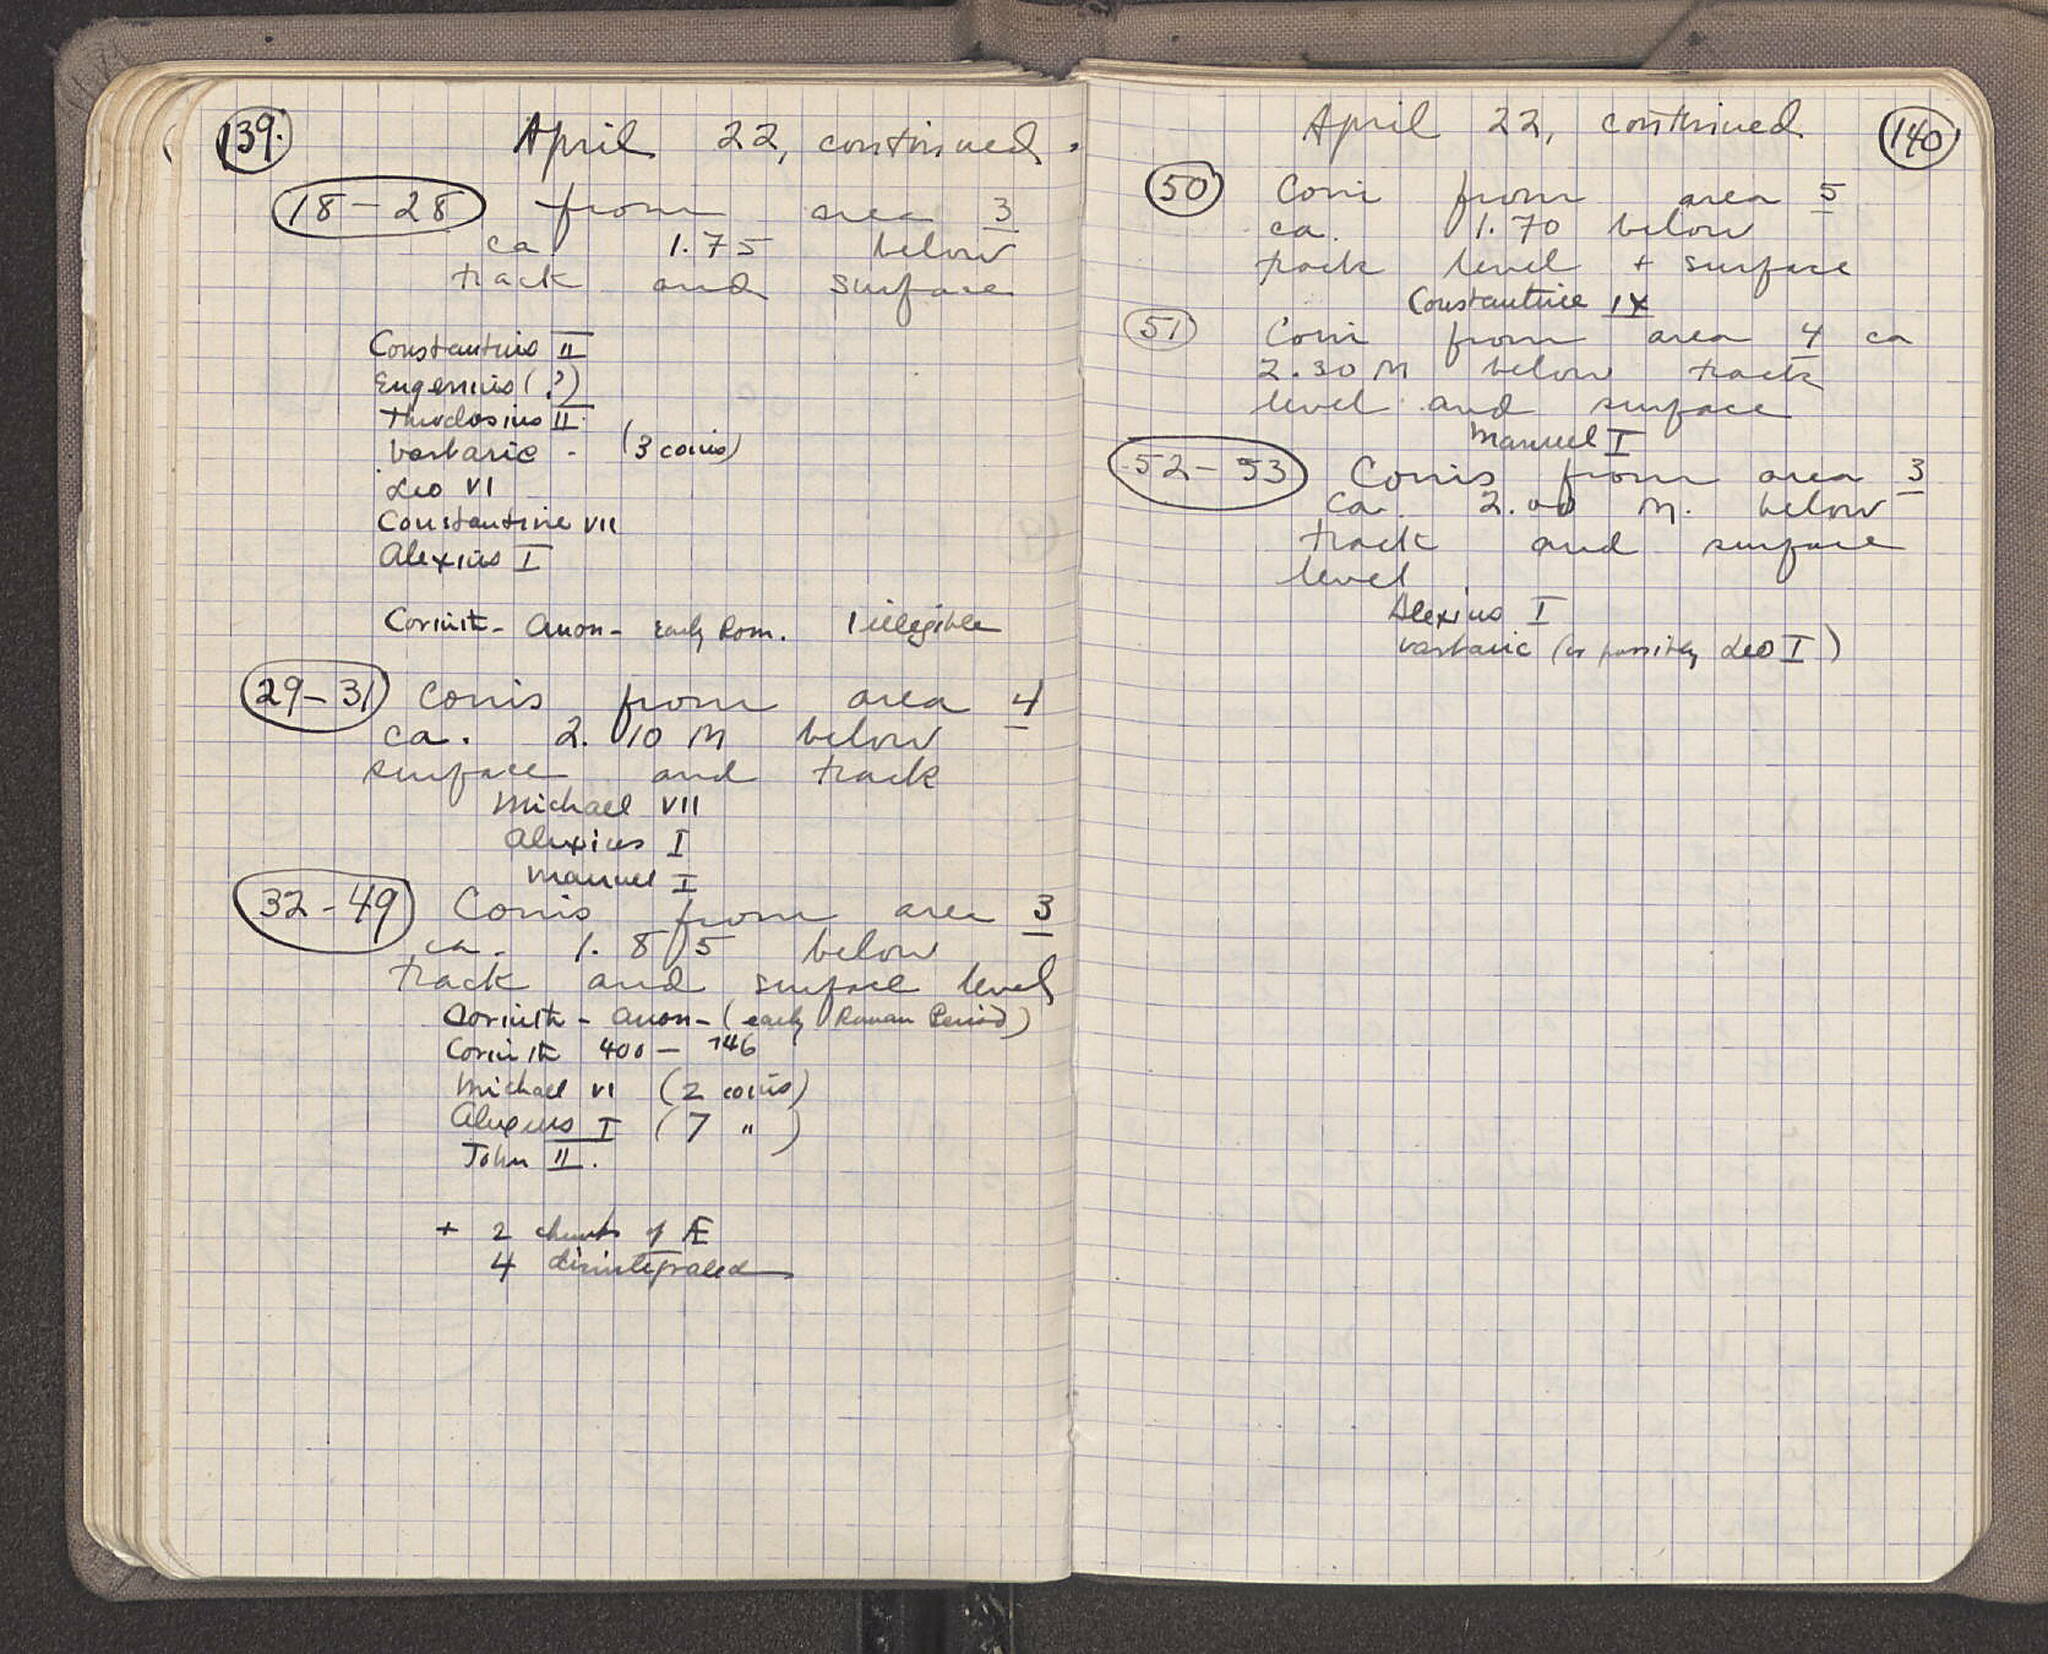 139.
April 22, continued.
18-28 from area 3
ca 1.75 below
track and surface
Constantius II
Eugenius (?)
Theodosius II.
barbaric - (3 coins)
Leo VI
Constantine VII
Alexius I
Corinth - Anon - early Rom. 1 illegible
29-31 Coins from area 4
ca. 2.10 M below
surface and track
Michael VII
Alexius I
Manuel I
32-49 Coins from area 3
ca. 1.85 below
track and surface level
Corinth - Anon - (early Roman Period)
Corinth 400 - 146
Michael VI (2 coins)
Alexius I (7 ")
John II.
+ 2 chunks of Æ
4 disintegrated
April 22, continued.
140
50 Coin from area 5
ca. 1.70 below
track level + surface
Constantine IX
51 Coin from area 4 ca
2.30 M below track
level and surface
Manuel I
52-53 Coins from area 3
ca. 2.00 M. below
track and surface
level
Alexius I
barbaric (or possibly Leo I)